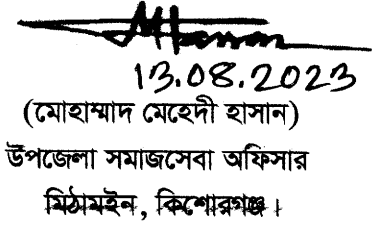 13.08.2023
(মোহাম্মাদ মেহেদী হাসান)
উপজেলা সমাজসেবা অফিসার
মিঠামইন, কিশোরগঞ্জ।